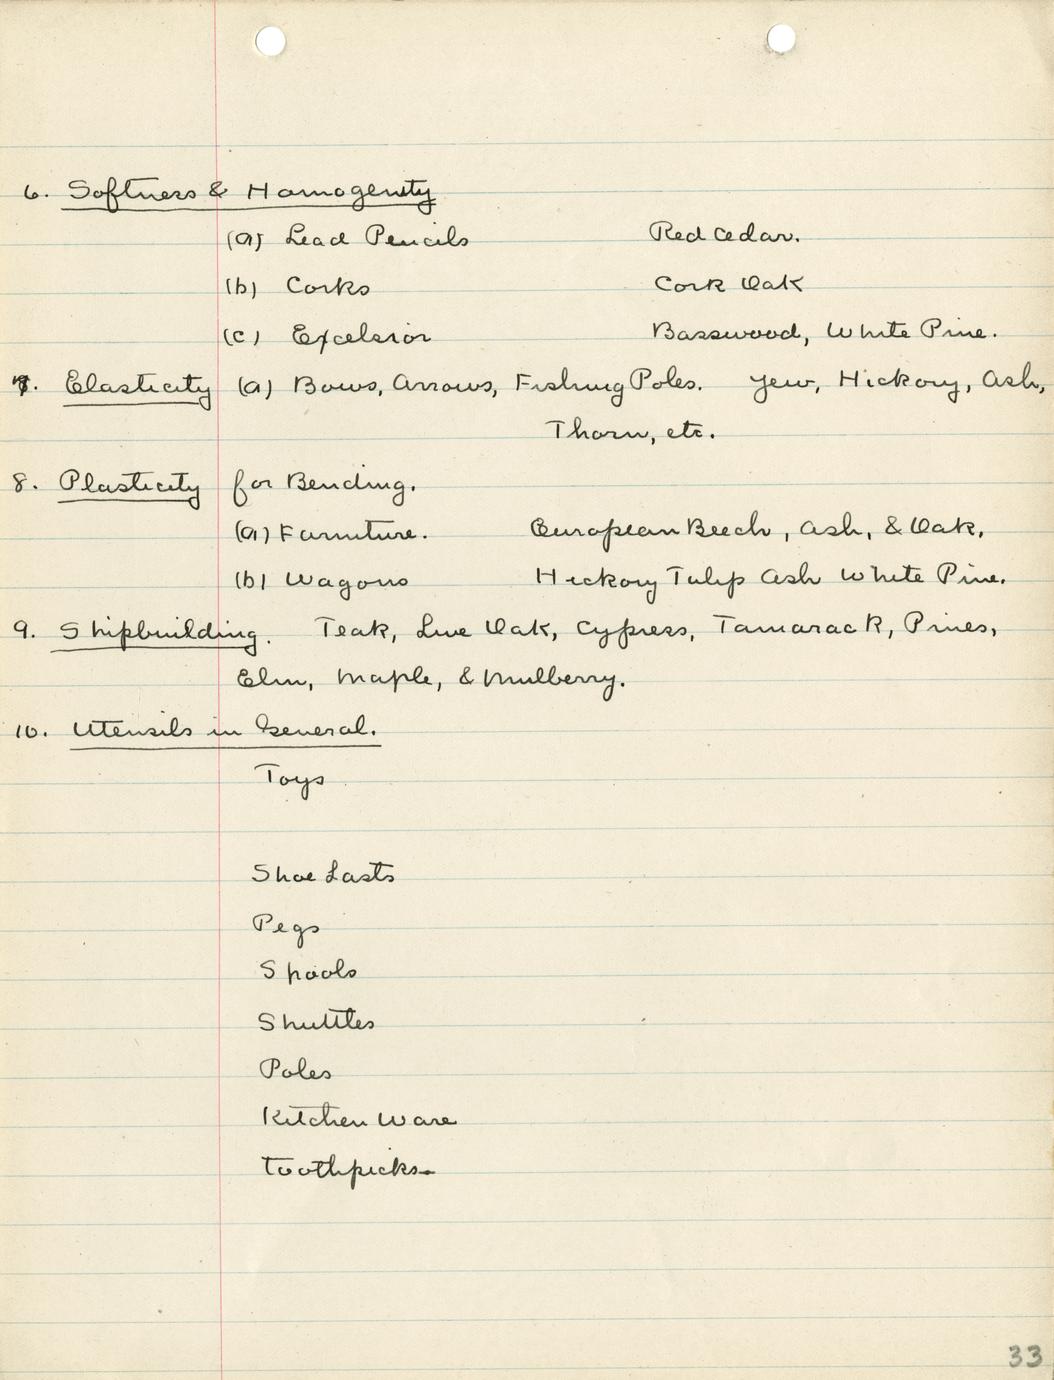 6. Softness & Homogenity
(a) Lead Pencils Red Cedar.
(b) Corks Cork Oak
(c) Excelsior Basswood, White Pine.
7. Elasticity (a) Bows, Arrows, Fishing Poles. Yew, Hickory, Ash,
Thorn, etc.
8. Plasticity for Bending.
(a) Furniture. European Beech, Ash, & Oak.
(b) Wagons Hickory Tulip Ash White Pine.
9. Shipbuilding. Teak, Live Oak, Cypress, Tamarack, Pines,
Elm, Maple, & Mulberry.
10. Utensils in General.
Toys
Shoe Lasts
Pegs
Spools
Shuttles
Poles
Kitchen Ware
Toothpicks
33